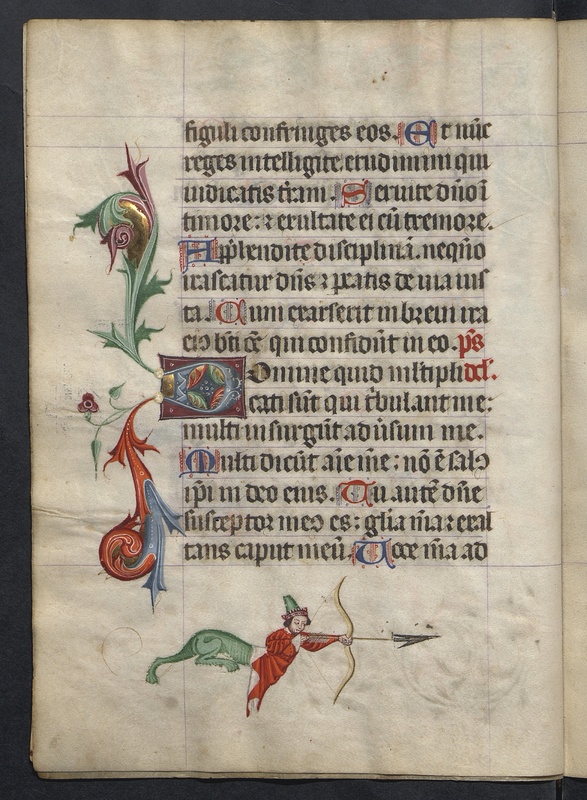 figuli confringes eos. Et nūc
reges intelligite: erudimini qui
iudicatis t̄ram. Seruite dn̄o ī
timore: ⁊ exultate ei cū tremore.
Apphendite disciplinā. neqn̄o
irascatur dn̄s ⁊ peatis de uia ius
ta. Cum exarserit in breui ira
eiꝯ bt̄i oēs qui confidūt in eo. ps
Domine quid mltipli dd̄.
cati sūt qui tbulant me:
multi insurgūt aduersum me.
Multi dicūt aīe mē: nō ē salꝯ
ipi in deo eius. Tu autē dn̄e
susceptor meꝯ es: glīa mā ⁊ exal
tans caput meū. Uoce mā ad